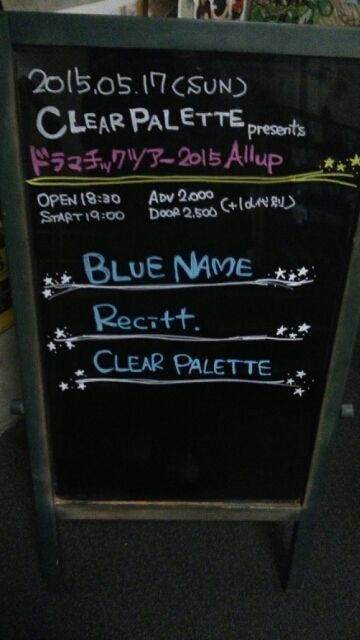 2015.05.17(SUN)
CLEAR PALETTE presents
ドラマチックツアー2015 Allup
OPEN 18:30 ADV 2,000
START 19:00 DOOR 2,500 (+1d代別)
BLUE NAME
Recitt.
CLEAR PALETTE